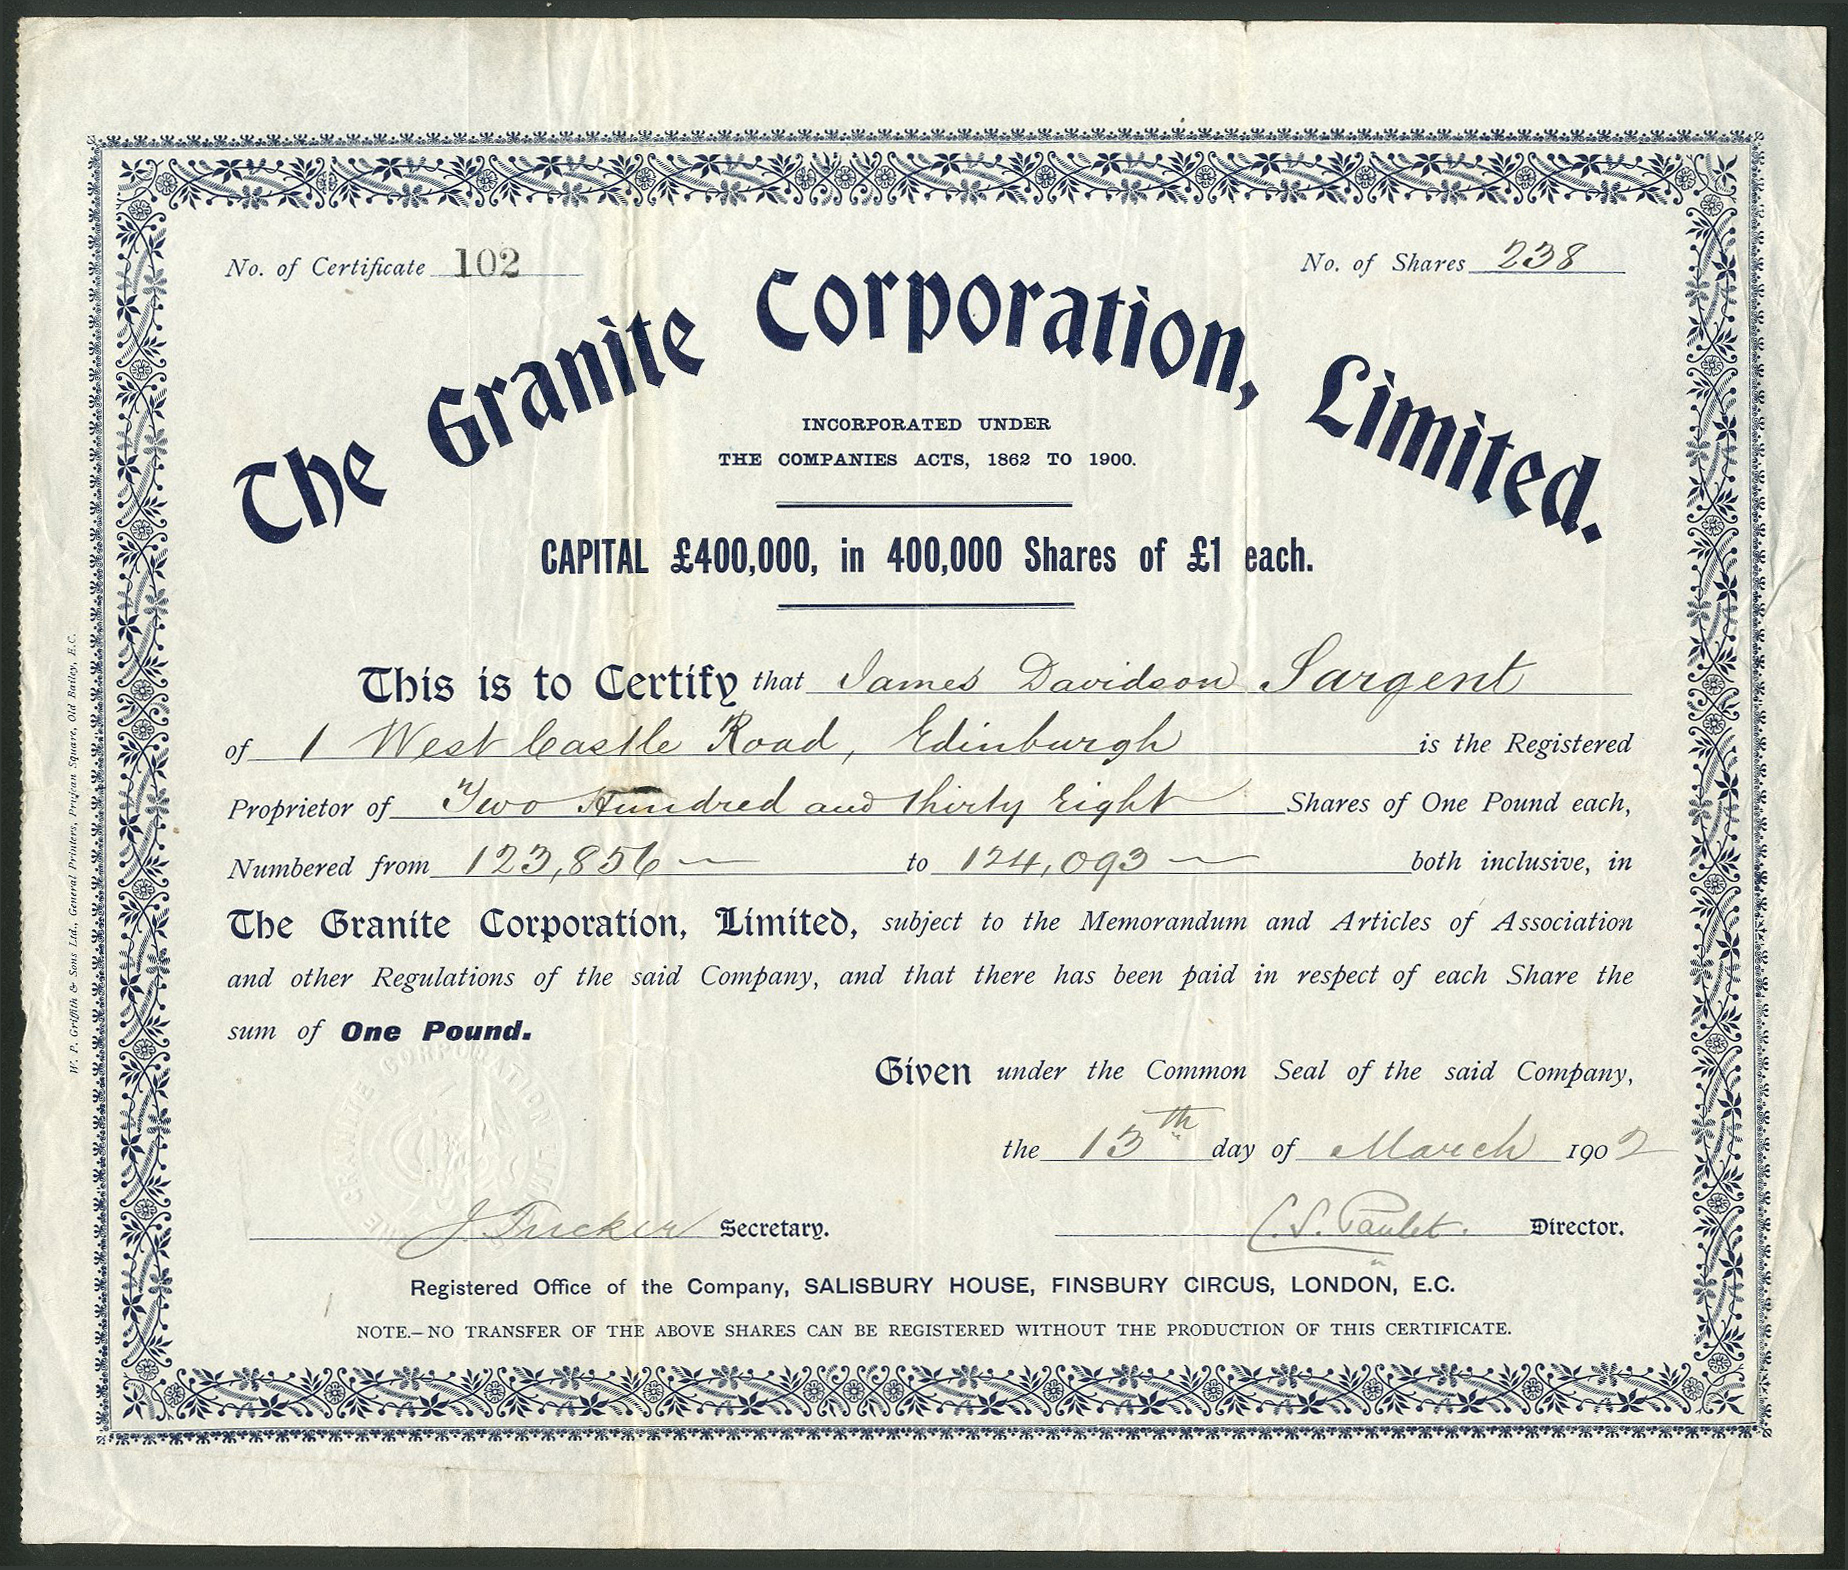 No. of Certificate 102
No. of Shares 238
The Granite Corporation, Limited.
INCORPORATED UNDER
THE COMPANIES ACTS, 1862 TO 1900.
CAPITAL £400,000, in 400,000 Shares of £1 each.
This is to Certify that James Davidson Sargent
of 1 West Castle Road, Edinburgh is the Registered
Proprietor of Two Hundred and thirty Eight Shares of One Pound each,
Numbered from 123,856 to 124,093 both inclusive, in
The Granite Corporation, Limited, subject to the Memorandum and Articles of Association
and other Regulations of the said Company, and that there has been paid in respect of each Share the
sum of One Pound.
Given under the Common Seal of the said Company,
the 13th day of March 1902
J. Tucker Secretary.
C. S. Paulet. Director.
Registered Office of the Company, SALISBURY HOUSE, FINSBURY CIRCUS, LONDON, E.C.
NOTE.—NO TRANSFER OF THE ABOVE SHARES CAN BE REGISTERED WITHOUT THE PRODUCTION OF THIS CERTIFICATE.
W. P. Griffith & Sons Ltd., General Printers, Prujean Square, Old Bailey, E.C.